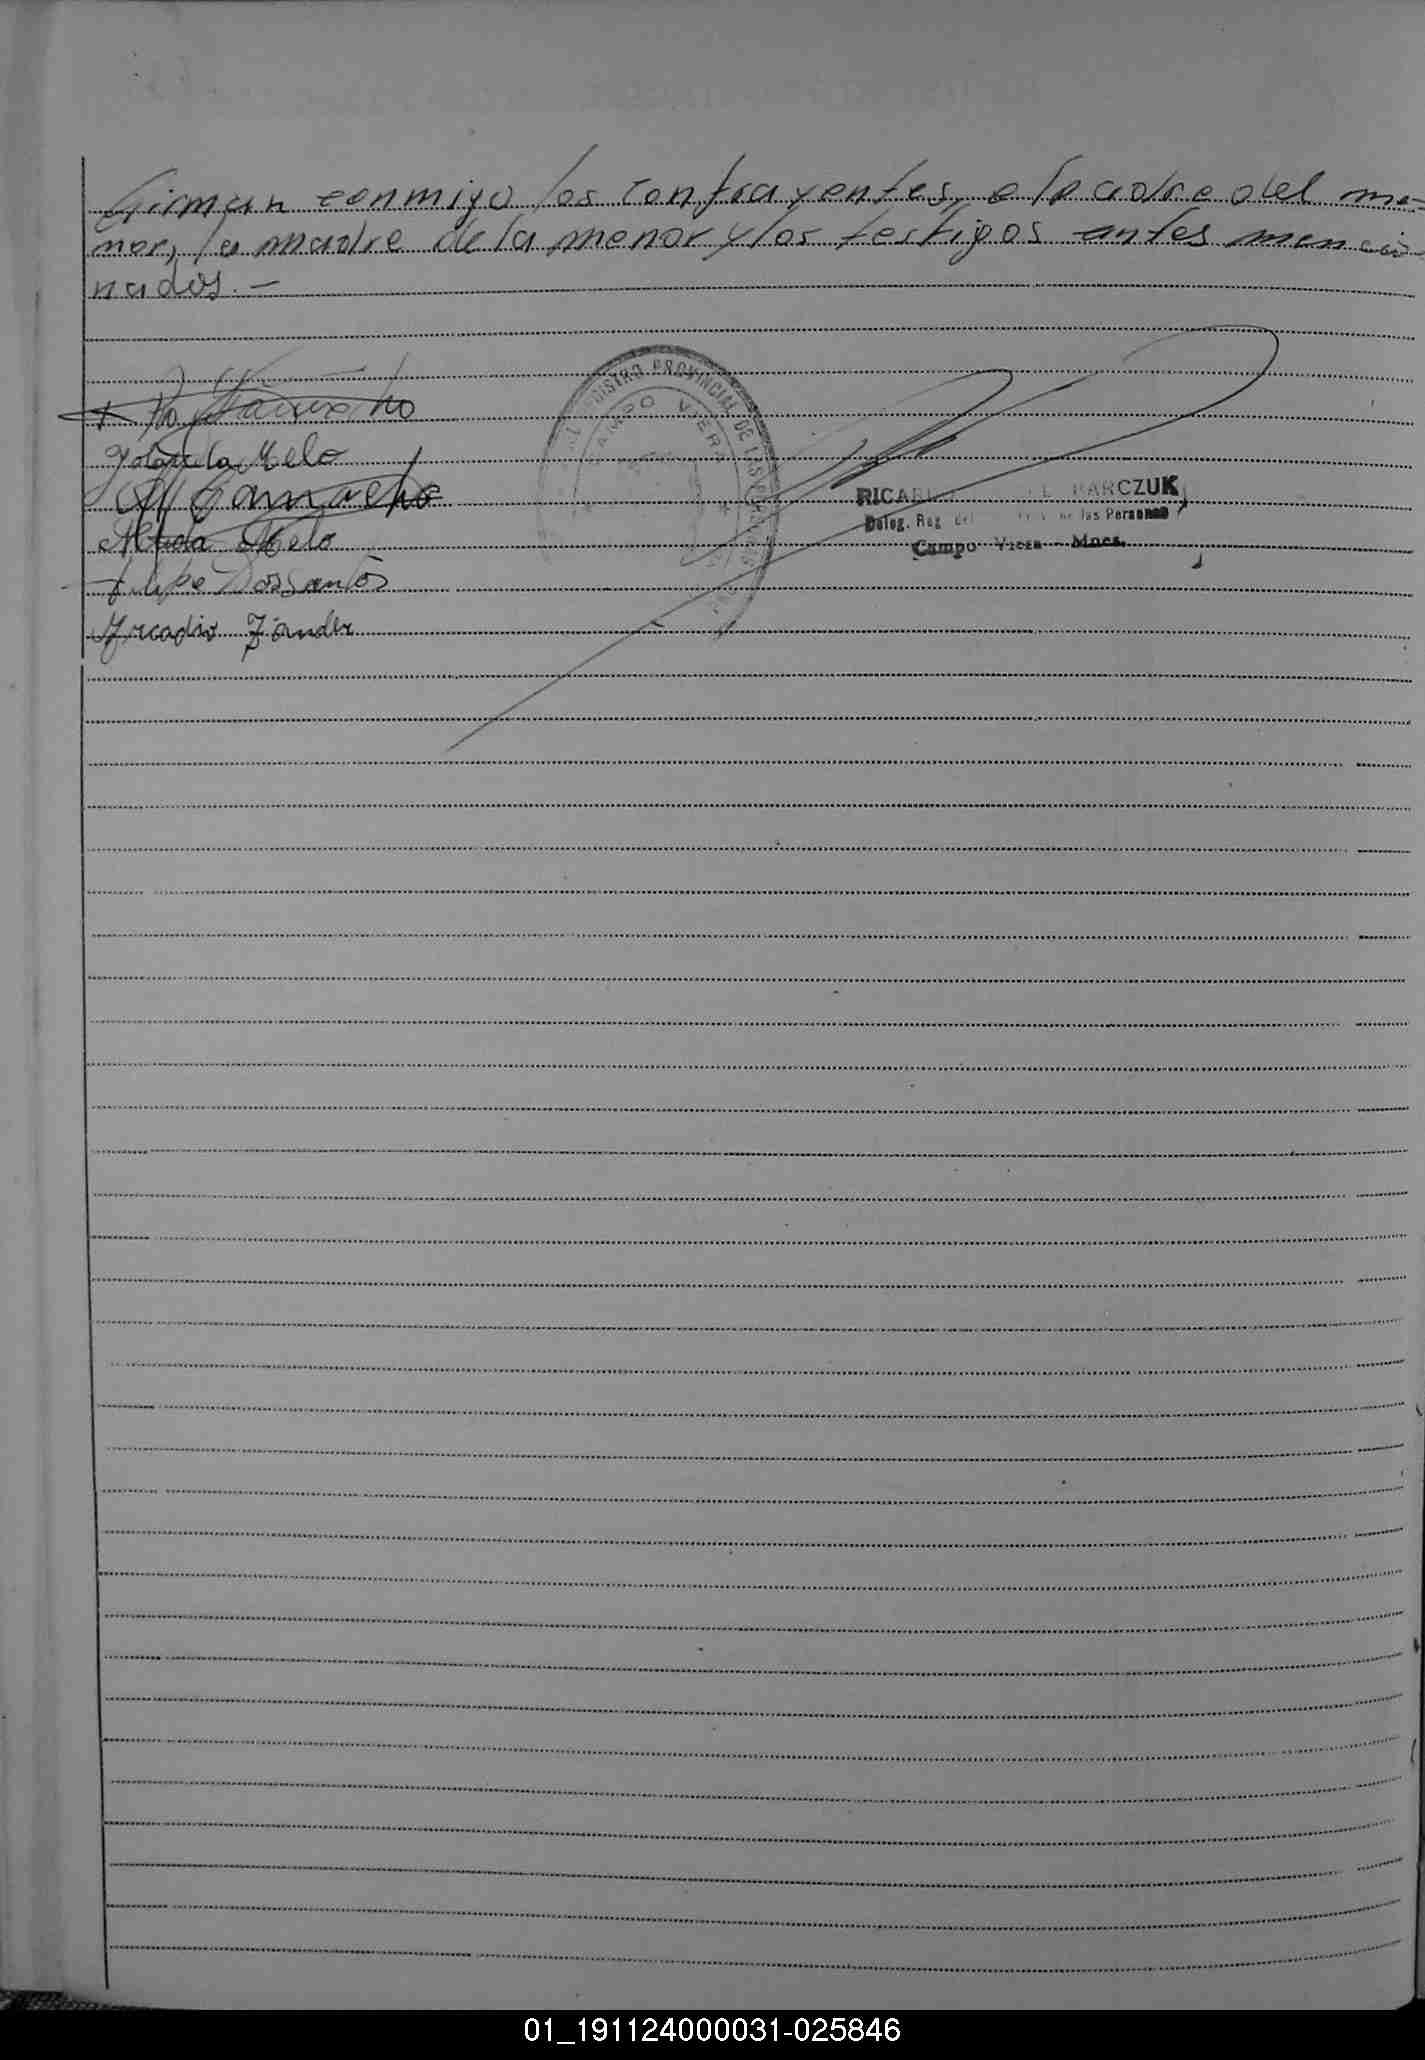 Firman conmigo los contrayentes, el padre del me-
nor, la madre de la menor y los testigos antes mencio-
nados.-
Camacho
Yolanda Melo
Camacho
Melo
Felipe Dos Santos
Arcadio
REGISTRO PROVINCIAL DE LAS PERSONAS
CAMPO VIERA
RICAR
Deleg. Reg. del de las Personas
Campo Viera - Mnes.
01_191124000031-025846